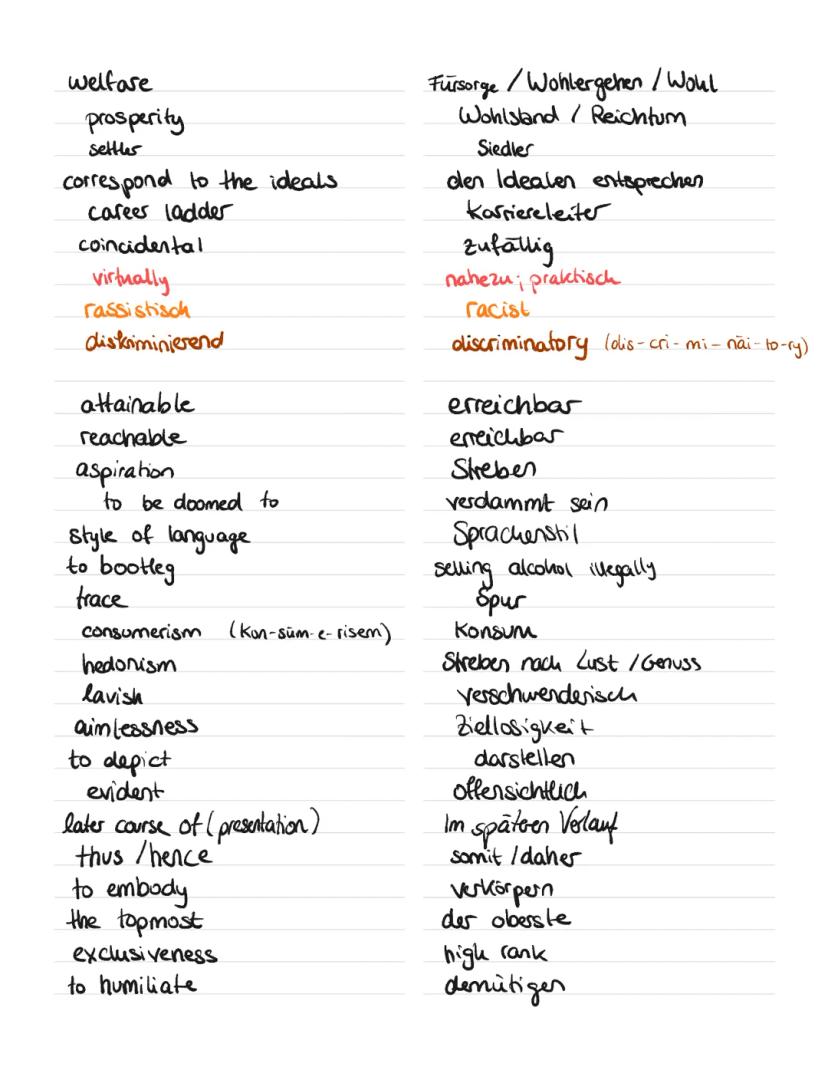 welfare Fürsorge / Wohlergehen / Wohl
prosperity Wohlstand / Reichtum
settler Siedler
correspond to the ideals den Idealen entsprechen
career ladder Karriereleiter
coincidental zufällig
virtually nahezu; praktisch
rassistisch racist
diskriminierend discriminatory (dis-cri-mi-näi-to-ry)
attainable erreichbar
reachable erreichbar
aspiration Streben
to be doomed to verdammt sein
style of language Sprachenstil
to bootleg selling alcohol illegally
trace Spur
consumerism (Kon-süm-e-risem) Konsum
hedonism Streben nach Lust / Genuss
lavish verschwenderisch
aimlessness Ziellosigkeit
to depict darstellen
evident offensichtlich
later course of (presentation) Im späteren Verlauf
thus / hence somit / daher
to embody verkörpern
the topmost der oberste
exclusiveness high rank
to humiliate demütigen